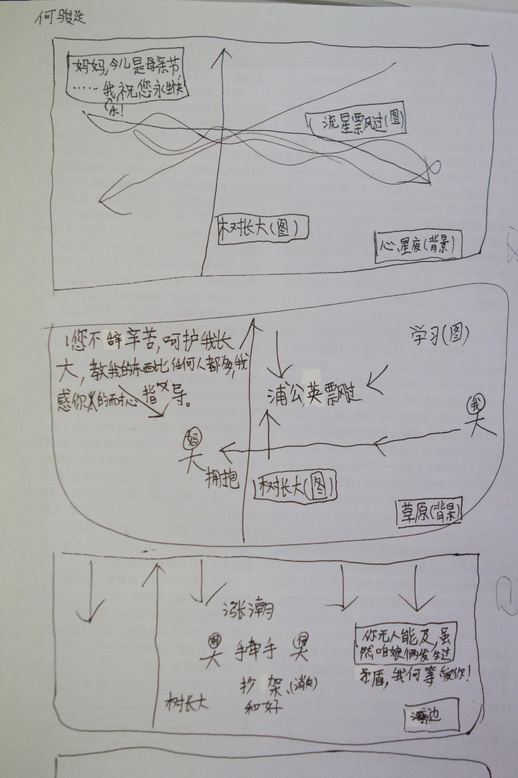 何骏廷
妈妈,今儿是母亲节,
……我祝您永生快
乐!
流星票风过(图)
树长大(图)
心星夜(背景)
您不辞辛苦,呵护我长
大,教我的东西比任何人都多,我
感你的耐心 指导。
学习(图)
浦公英票风过
我
妈
拥抱
树长大(图)
草原(背景)
涨潮
手牵手
树长大
抄 架(消失)
和好
你无人能及,虽
然咱娘俩发生过
矛盾,我何等爱你!
海边